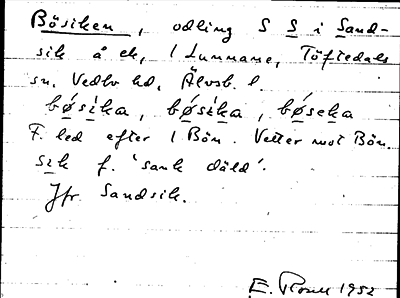 Bösiken, odling S S i Sand-
sik å ek, 1 Lunnane, Töftedals
sn. Vedbo hd, Älvsb. l.
bǿsika, bǿsika, bǿseka
F. led efter 1 Bön. Vetter mot Bön.
sik f. 'sank däld'.
Jfr Sandsik.
E. 1952